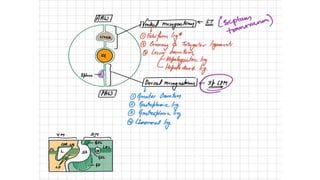 (AAW)
Ventral mesogastrium ← ST (Septum transversum)
① Falciform lig
② Coronary & Triangular ligaments
③ Lesser omentum
→ Hepatogastric lig
→ Hepatoduod. lig
Liver
Spleen
Dorsal mesogastrium ← Sp LPM
(PAW)
① Greater Omentum
② Gastrophrenic lig
③ Gastrosplenic lig
④ Lienorenal lig
VM
DM